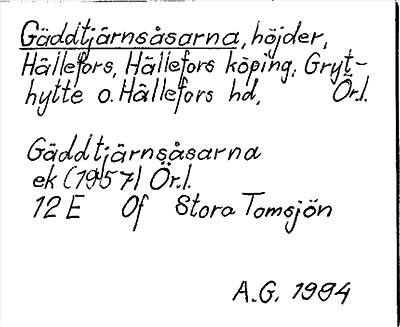 Gäddtjärnsåsarna, höjder,
Hällefors, Hällefors köping, Gryt-
hytte o. Hällefors hd, Ör.l.
Gäddtjärnsåsarna
ek (1957) Ör.l.
12 E Of Stora Tomsjön
A.G. 1994